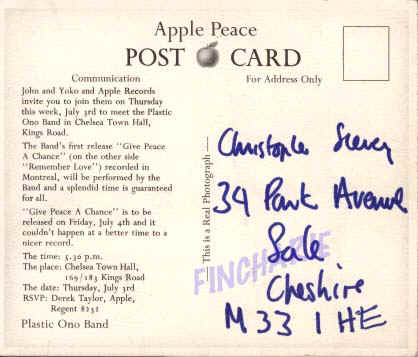 Apple Peace
POST CARD
Communication
For Address Only
John and Yoko and Apple Records
invite you to join them on Thursday
this week, July 3rd to meet the Plastic
Ono Band in Chelsea Town Hall,
Kings Road.
The Band's first release "Give Peace
A Chance" (on the other side
"Remember Love") recorded in
Montreal, will be performed by the
Band and a splendid time is guaranteed
for all.
"Give Peace A Chance" is to be
released on Friday, July 4th and it
couldn't happen at a better time to a
nicer record.
The time: 5.30 p.m.
The place: Chelsea Town Hall,
169/183 Kings Road
The date: Thursday, July 3rd
RSVP: Derek Taylor, Apple,
Regent 8232
Plastic Ono Band
This is a Real Photograph
Christopher
34 Park Avenue
Sale
Cheshire
M33 1HE